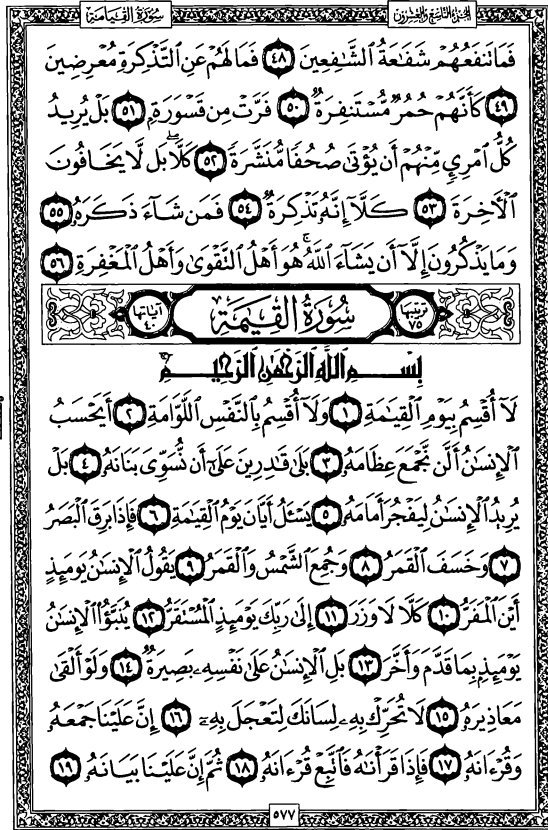 سُورَةُ القِيَامَةِ الجُزْءُ التَّاسِعُ وَالعِشْرُونَ
فَمَا تَنفَعُهُمْ شَفَٰعَةُ ٱلشَّٰفِعِينَ ٤٨ فَمَا لَهُمْ عَنِ ٱلتَّذْكِرَةِ مُعْرِضِينَ
٤٩ كَأَنَّهُمْ حُمُرٌ مُّسْتَنفِرَةٌ ٥٠ فَرَّتْ مِن قَسْوَرَةٍۭ ٥١ بَلْ يُرِيدُ
كُلُّ ٱمْرِئٍ مِّنْهُمْ أَن يُؤْتَىٰ صُحُفًا مُّنَشَّرَةً ٥٢ كَلَّا ۖ بَل لَّا يَخَافُونَ
ٱلْءَاخِرَةَ ٥٣ كَلَّآ إِنَّهُۥ تَذْكِرَةٌ ٥٤ فَمَن شَآءَ ذَكَرَهُۥ ٥٥
وَمَا يَذْكُرُونَ إِلَّآ أَن يَشَآءَ ٱللَّهُ ۚ هُوَ أَهْلُ ٱلتَّقْوَىٰ وَأَهْلُ ٱلْمَغْفِرَةِ ٥٦
ترتيبها ٧٥ سُورَةُ القِيَٰمَةِ آياتها ٤٠
بِسْمِ ٱللَّهِ ٱلرَّحْمَٰنِ ٱلرَّحِيمِ
لَآ أُقْسِمُ بِيَوْمِ ٱلْقِيَٰمَةِ ١ وَلَآ أُقْسِمُ بِٱلنَّفْسِ ٱللَّوَّامَةِ ٢ أَيَحْسَبُ
ٱلْإِنسَٰنُ أَلَّن نَّجْمَعَ عِظَامَهُۥ ٣ بَلَىٰ قَٰدِرِينَ عَلَىٰٓ أَن نُّسَوِّىَ بَنَانَهُۥ ٤ بَلْ
يُرِيدُ ٱلْإِنسَٰنُ لِيَفْجُرَ أَمَامَهُۥ ٥ يَسْـَٔلُ أَيَّانَ يَوْمُ ٱلْقِيَٰمَةِ ٦ فَإِذَا بَرِقَ ٱلْبَصَرُ
٧ وَخَسَفَ ٱلْقَمَرُ ٨ وَجُمِعَ ٱلشَّمْسُ وَٱلْقَمَرُ ٩ يَقُولُ ٱلْإِنسَٰنُ يَوْمَئِذٍ
أَيْنَ ٱلْمَفَرُّ ١٠ كَلَّا لَا وَزَرَ ١١ إِلَىٰ رَبِّكَ يَوْمَئِذٍ ٱلْمُسْتَقَرُّ ١٢ يُنَبَّؤُا۟ ٱلْإِنسَٰنُ
يَوْمَئِذٍۭ بِمَا قَدَّمَ وَأَخَّرَ ١٣ بَلِ ٱلْإِنسَٰنُ عَلَىٰ نَفْسِهِۦ بَصِيرَةٌ ١٤ وَلَوْ أَلْقَىٰ
مَعَاذِيرَهُۥ ١٥ لَا تُحَرِّكْ بِهِۦ لِسَانَكَ لِتَعْجَلَ بِهِۦٓ ١٦ إِنَّ عَلَيْنَا جَمْعَهُۥ
وَقُرْءَانَهُۥ ١٧ فَإِذَا قَرَأْنَٰهُ فَٱتَّبِعْ قُرْءَانَهُۥ ١٨ ثُمَّ إِنَّ عَلَيْنَا بَيَانَهُۥ ١٩
٥٧٧